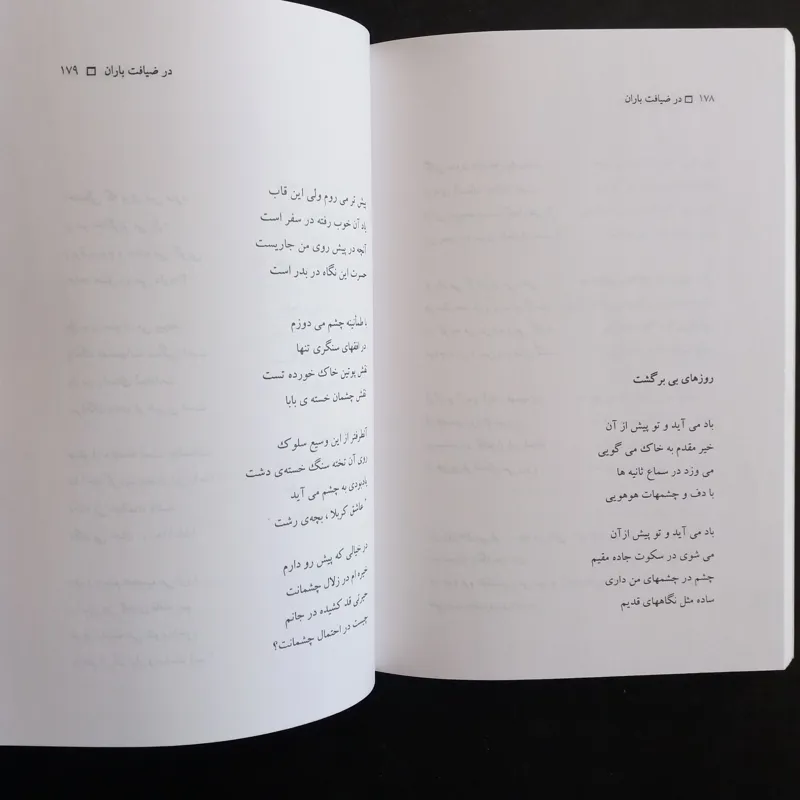 ۱۷۸ □ در ضیافت باران
روزهای بی برگشت
باد می آید و تو پیش از آن
خیر مقدم به خاک می گویی
می وزد در سماع ثانیه ها
با دف و چشمهات هوهویی
باد می آید و تو پیش ازآن
می شوی در سکوت جاده مقیم
چشم در چشمهای من داری
ساده مثل نگاههای قدیم
در ضیافت باران □ ۱۷۹
پیش تر می روم ولی این قاب
یاد آن خوب رفته در سفر است
آنچه در پیش روی من جاریست
حسرت این نگاه در بدر است
با طمأنینه چشم می دوزم
در افقهای سنگری تنها
نقش پوتین خاک خورده تست
نقش چشمان خسته ی بابا
آنطرفتر از این وسیع سلوک
روی آن تخته سنگ خسته‌ی دشت
یادبودی به چشم می آید
"عاشق کربلا ، بچه‌ی رشت
در خیالی که پیش رو دارم
خیره ام در زلال چشمانت
حیرتی قد کشیده در جانم
چیست در احتمال چشمانت؟